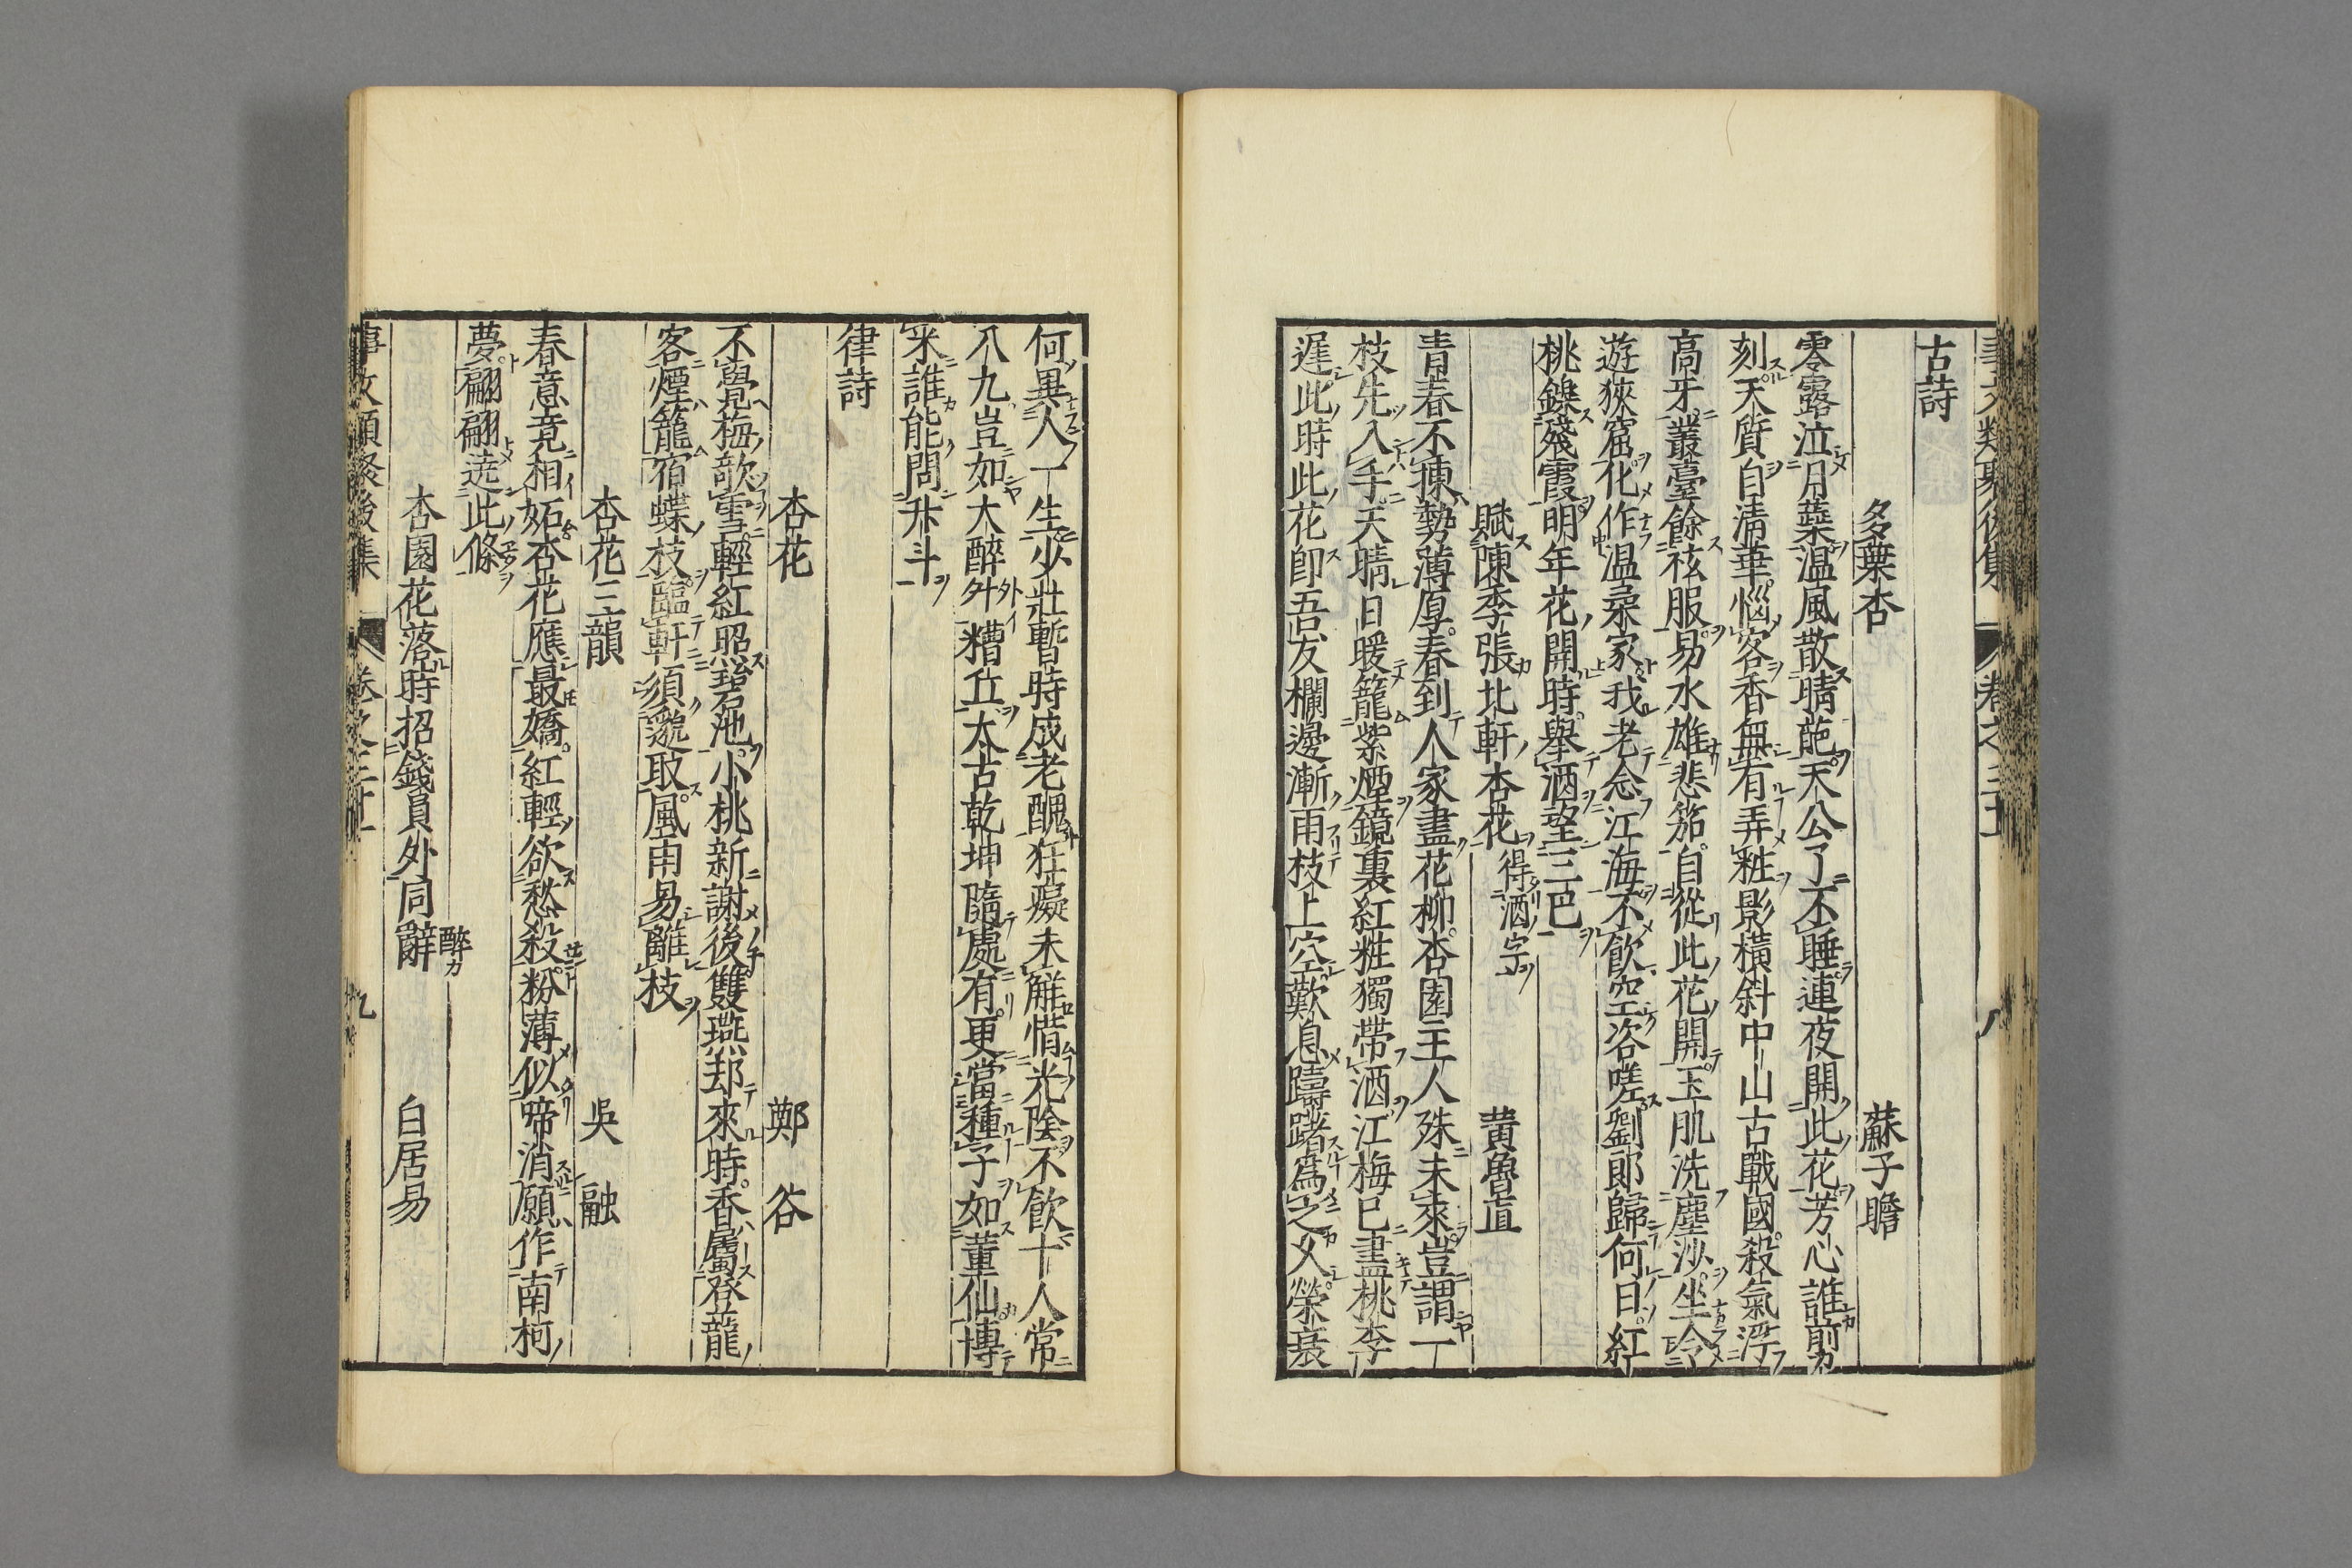 古詩
多葉杏　蘇子瞻
零露泣月蘂温風散晴葩天公了不睡連夜開此花芳心誰前
刻天質自清華惱客香無有弄粧影横斜中山古戰國殺氣浮
高牙叢臺餘袨服易水雄悲笳自從此花開玉肌洗塵沙坐令
遊狹窟化作温柔家我老念江海不飲空咨嗟劉郎歸何日紅
桃鑠殘霞明年花開時舉酒望三巴
賦陳季張北軒杏花得酒字　黄魯直
青春不揀勢薄厚春到人家盡花柳杏園主人殊未來豈謂一
枝先入手天晴日暖籠紫煙鏡裏紅粧獨帶酒江梅已盡桃李
遲此時此花即吾友欄邊漸雨枝上空歎息躊躇為之久榮衰
何異人一生少壯暫時成老醜狂癡未解惜光陰不飲十人常
八九豈如大醉舛糟丘太古乾坤隨處有更當種子如董仙博
米誰能問升斗
律詩
杏花　鄭谷
不覺梅欹雪輕紅照碧池小桃新謝後雙燕却來時香屬登龍
客煙籠宿蝶枝臨軒須邈取風雨易離枝
杏花三韻　吳融
春意竟相妬杏花應最嬌紅輕欲愁殺粉薄似啼消願作南柯
夢翩翩遶此條
杏園花落時招錢員外同辭　白居易
事文類聚後集　卷之三十一　九